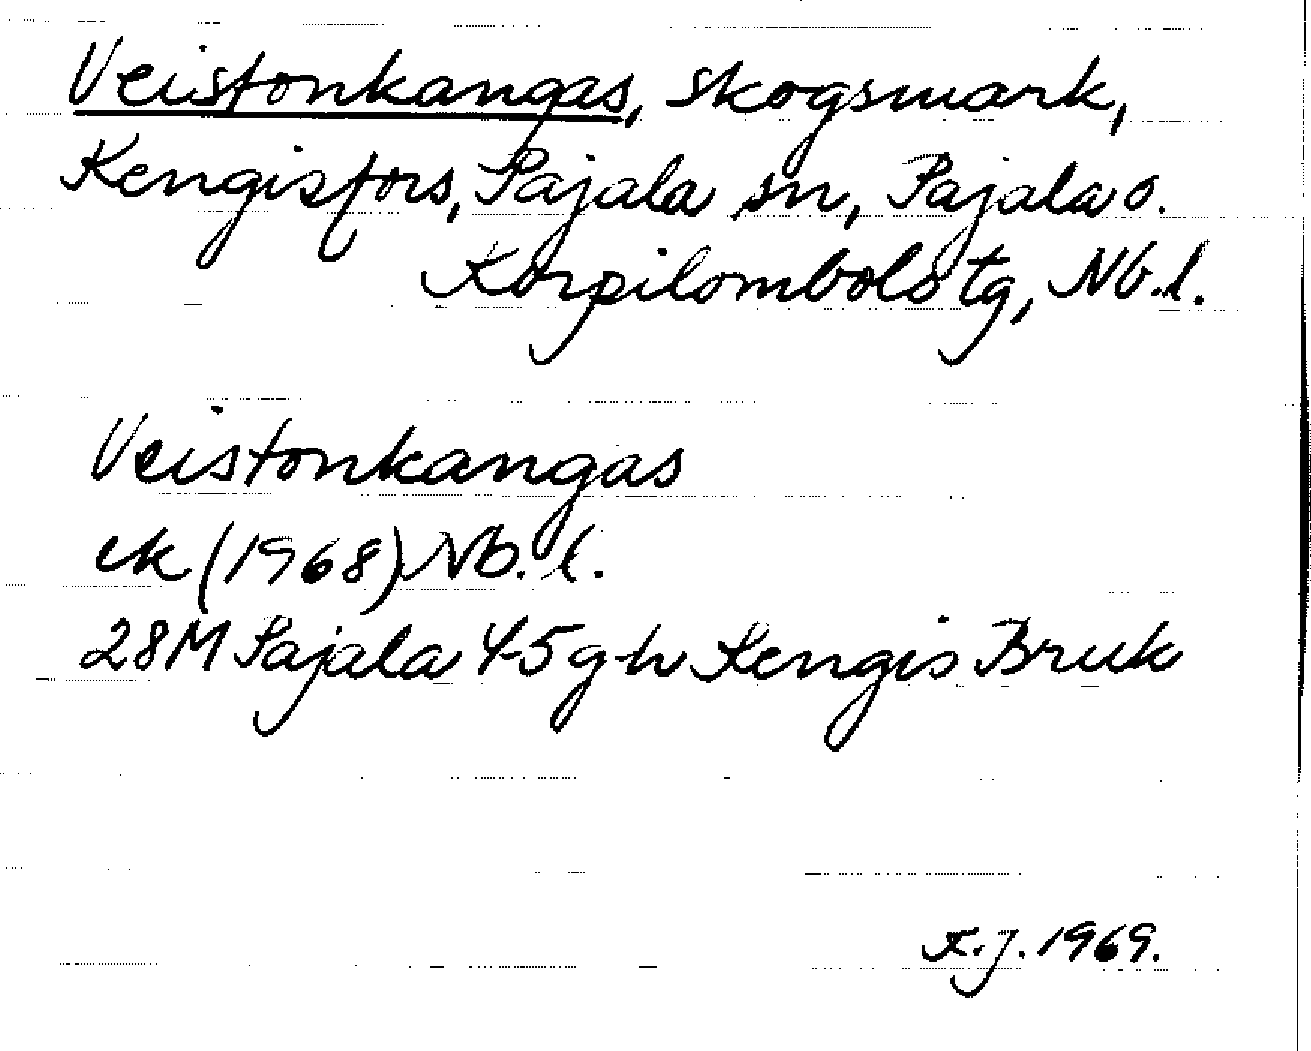 Veistonkangas, skogsmark,
Kengisfors, Pajala sn, Pajala o.
Korpilombolo tg, Nb.l.
Veistonkangas
ek (1968) Nb. l.
28M Pajala 4-5 g-h Kengis Bruk
K.J. 1969.